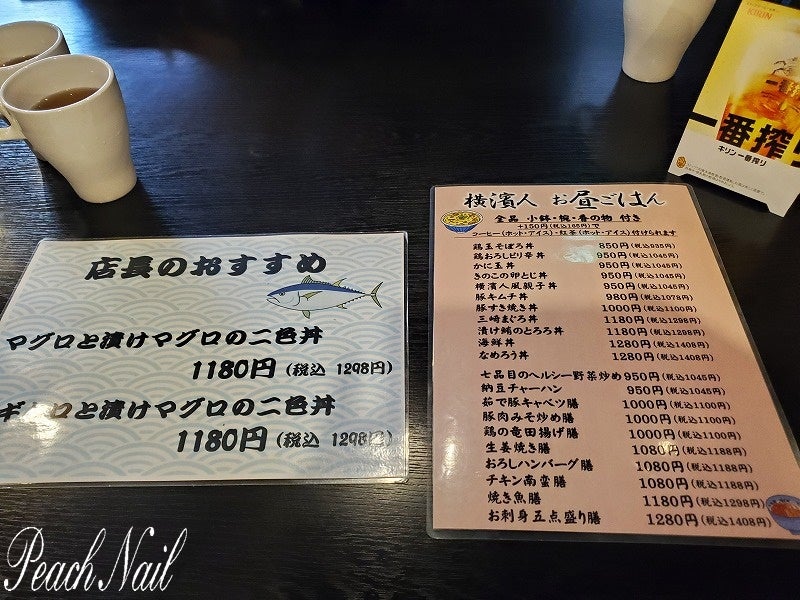 店長のおすすめ
マグロと漬けマグロの二色丼
1180円(税込 1298円)
と漬けマグロの二色丼
1180円(税込 1298円)
横濱人 お昼ごはん
全品 小鉢・椀・香の物 付き
+150円(税込165円)で
コーヒー(ホット・アイス)・紅茶(ホット・アイス)付けられます
鶏玉そぼろ丼 850円(税込935円)
鶏おろしピリ辛丼 950円(税込1045円)
かに玉丼 950円(税込1045円)
きのこの卵とじ丼 950円(税込1045円)
横濱人風親子丼 950円(税込1045円)
豚キムチ丼 980円(税込1078円)
豚すき焼き丼 1000円(税込1100円)
三崎まぐろ丼 1180円(税込1298円)
漬け鮪のとろろ丼 1180円(税込1298円)
海鮮丼 1280円(税込1408円)
なめろう丼 1280円(税込1408円)
七品目のヘルシー野菜炒め 950円(税込1045円)
納豆チャーハン 950円(税込1045円)
茹で豚キャベツ膳 1000円(税込1100円)
豚肉みそ炒め膳 1000円(税込1100円)
鶏の竜田揚げ膳 1000円(税込1100円)
生姜焼き膳 1080円(税込1188円)
おろしハンバーグ膳 1080円(税込1188円)
チキン南蛮膳 1080円(税込1188円)
焼き魚膳 1180円(税込1298円)
お刺身五点盛り膳 1280円(税込1408円)
KIRIN
一番搾り
キリン一番搾り
Peach Nail